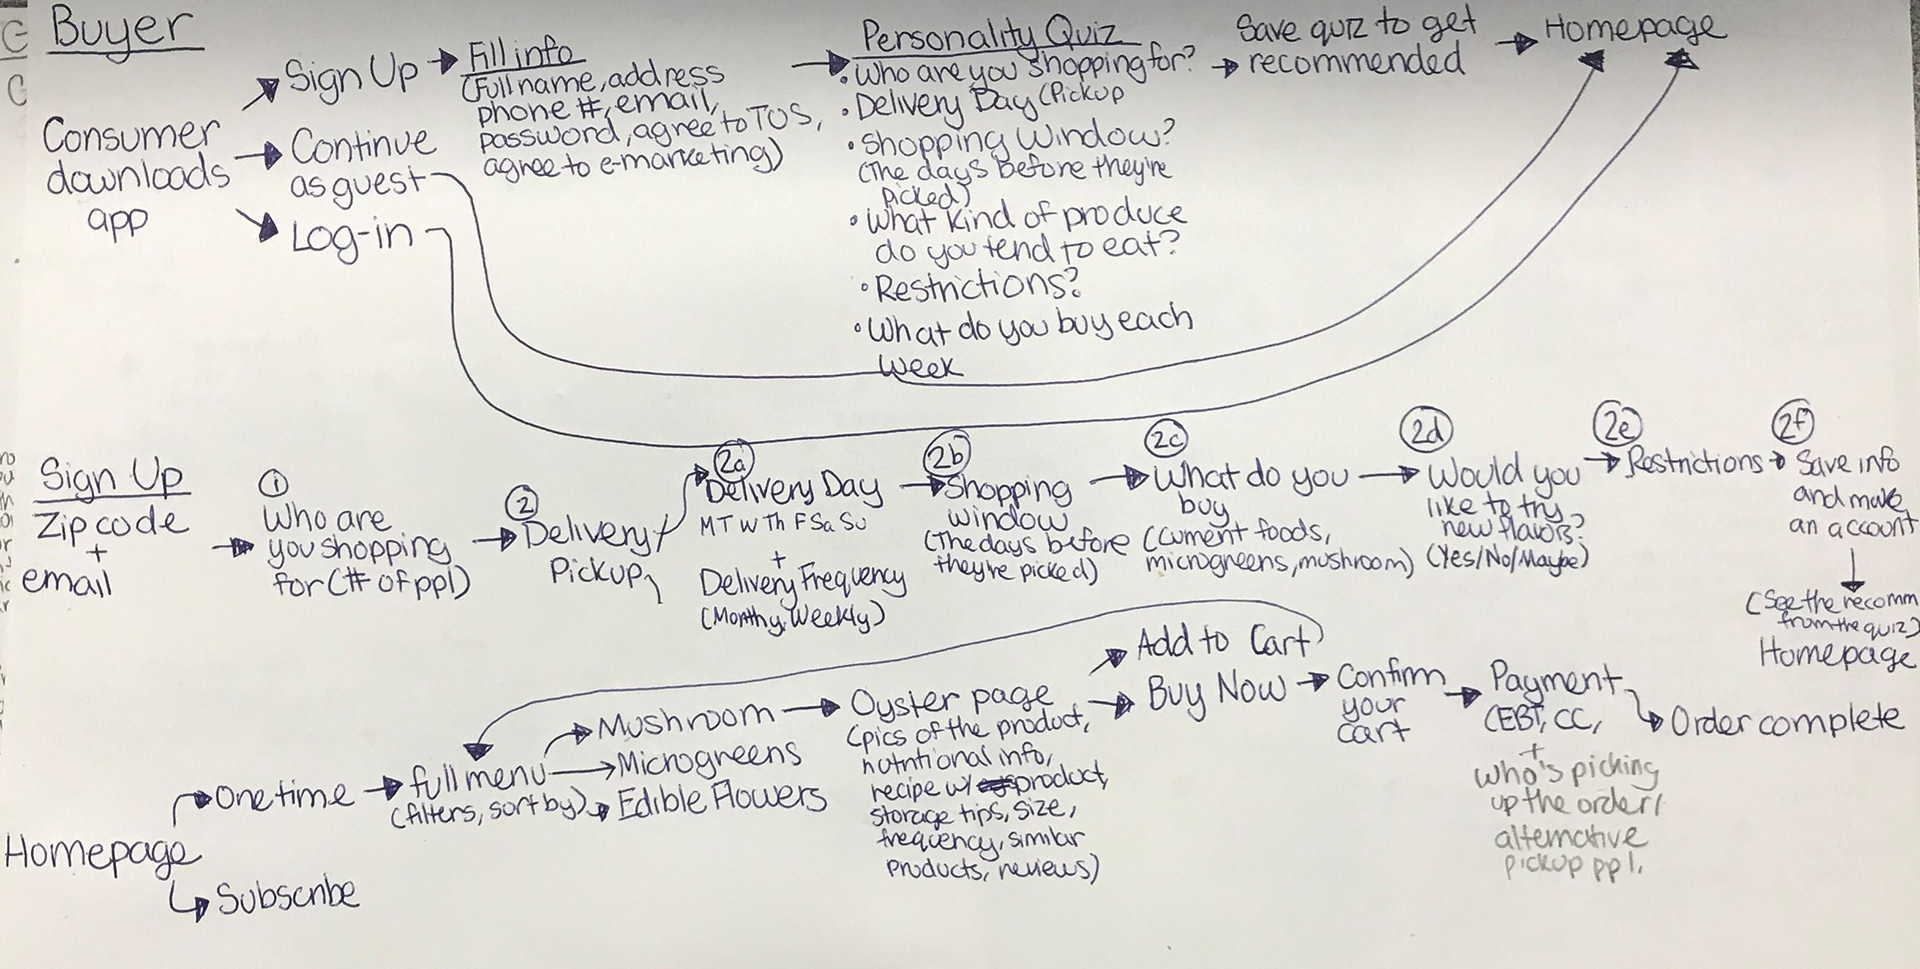 Buyer
Consumer
downloads
app
Sign Up
Continue
as guest
Log-in
Fill info
(Full name, address
phone #, email,
password, agree to TOS,
agree to e-marketing)
Personality Quiz
• Who are you shopping for?
• Delivery Day (Pickup
• Shopping Window?
(The days before they're
picked)
• What kind of produce
do you tend to eat?
• Restrictions?
• What do you buy each
week
Save quiz to get
recommended
Homepage
Sign Up
Zip code
+
email
1
Who are
you shopping
for (# of ppl)
2
Delivery/
Pickup
2a
Delivery Day
M T W Th F Sa Su
+
Delivery Frequency
(Monthly, Weekly)
2b
Shopping
window
(The days before
they're picked)
2c
What do you
buy
(current foods,
microgreens, mushroom)
2d
Would you
like to try
new flavors?
(Yes/No/Maybe)
2e
Restrictions
2f
Save info
and make
an account
(See the recomm
from the quiz)
Homepage
Homepage
One time
Subscribe
full menu
(filters, sort by)
Mushroom
Microgreens
Edible Flowers
Oyster page
(pics of the product,
nutritional info,
recipe w/ product,
storage tips, size,
frequency, similar
products, reviews)
Add to Cart
Buy Now
Confirm
your
cart
Payment
(EBT, CC,
+
who's picking
up the order/
alternative
pickup ppl.
Order complete